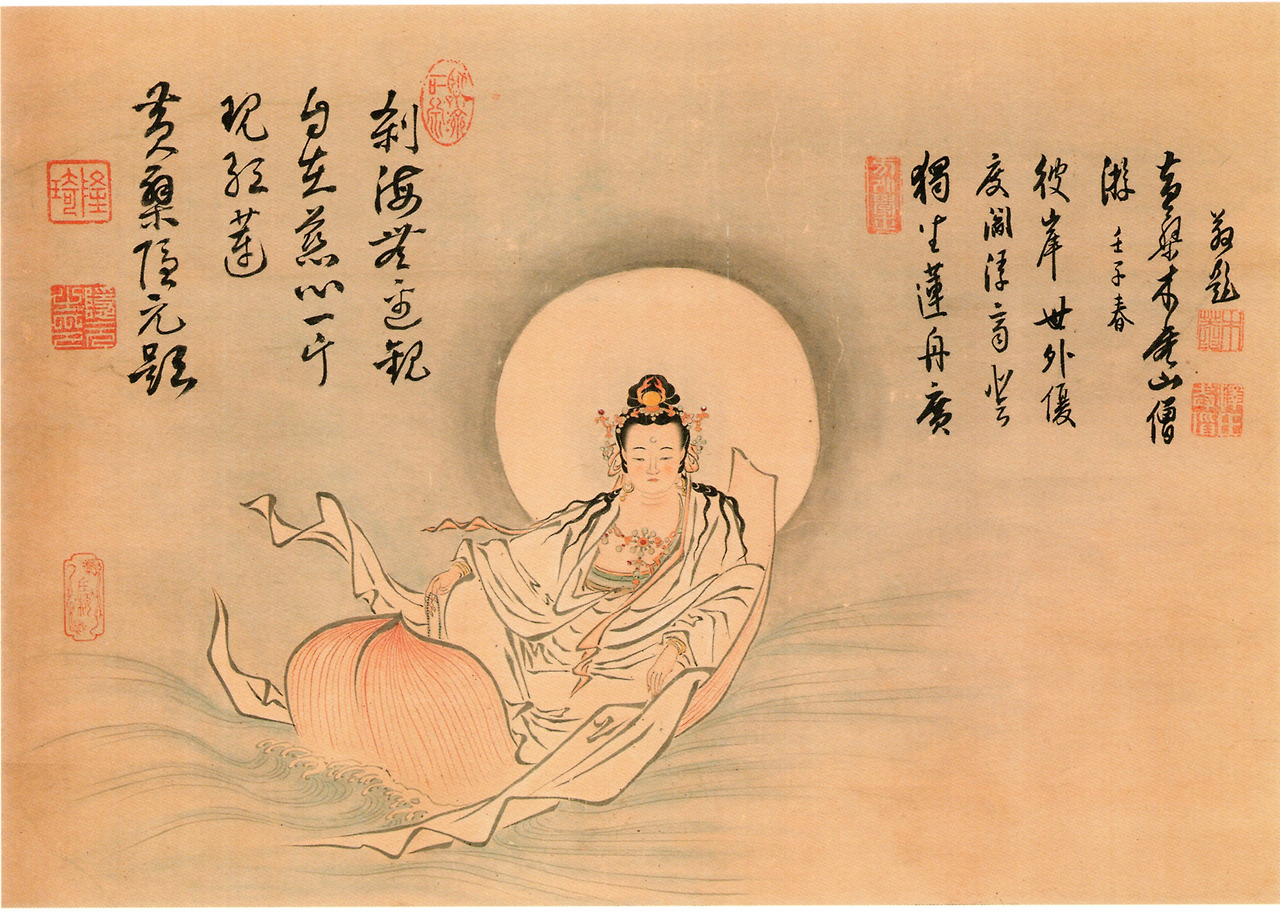 獨坐蓮舟廣
度閻浮齊登
彼岸世外優
游 壬子春
黃檗木菴山僧
題
刹海無邊觀
自在慈心一片
現紅蓮
黃檗隱元題
隆琦